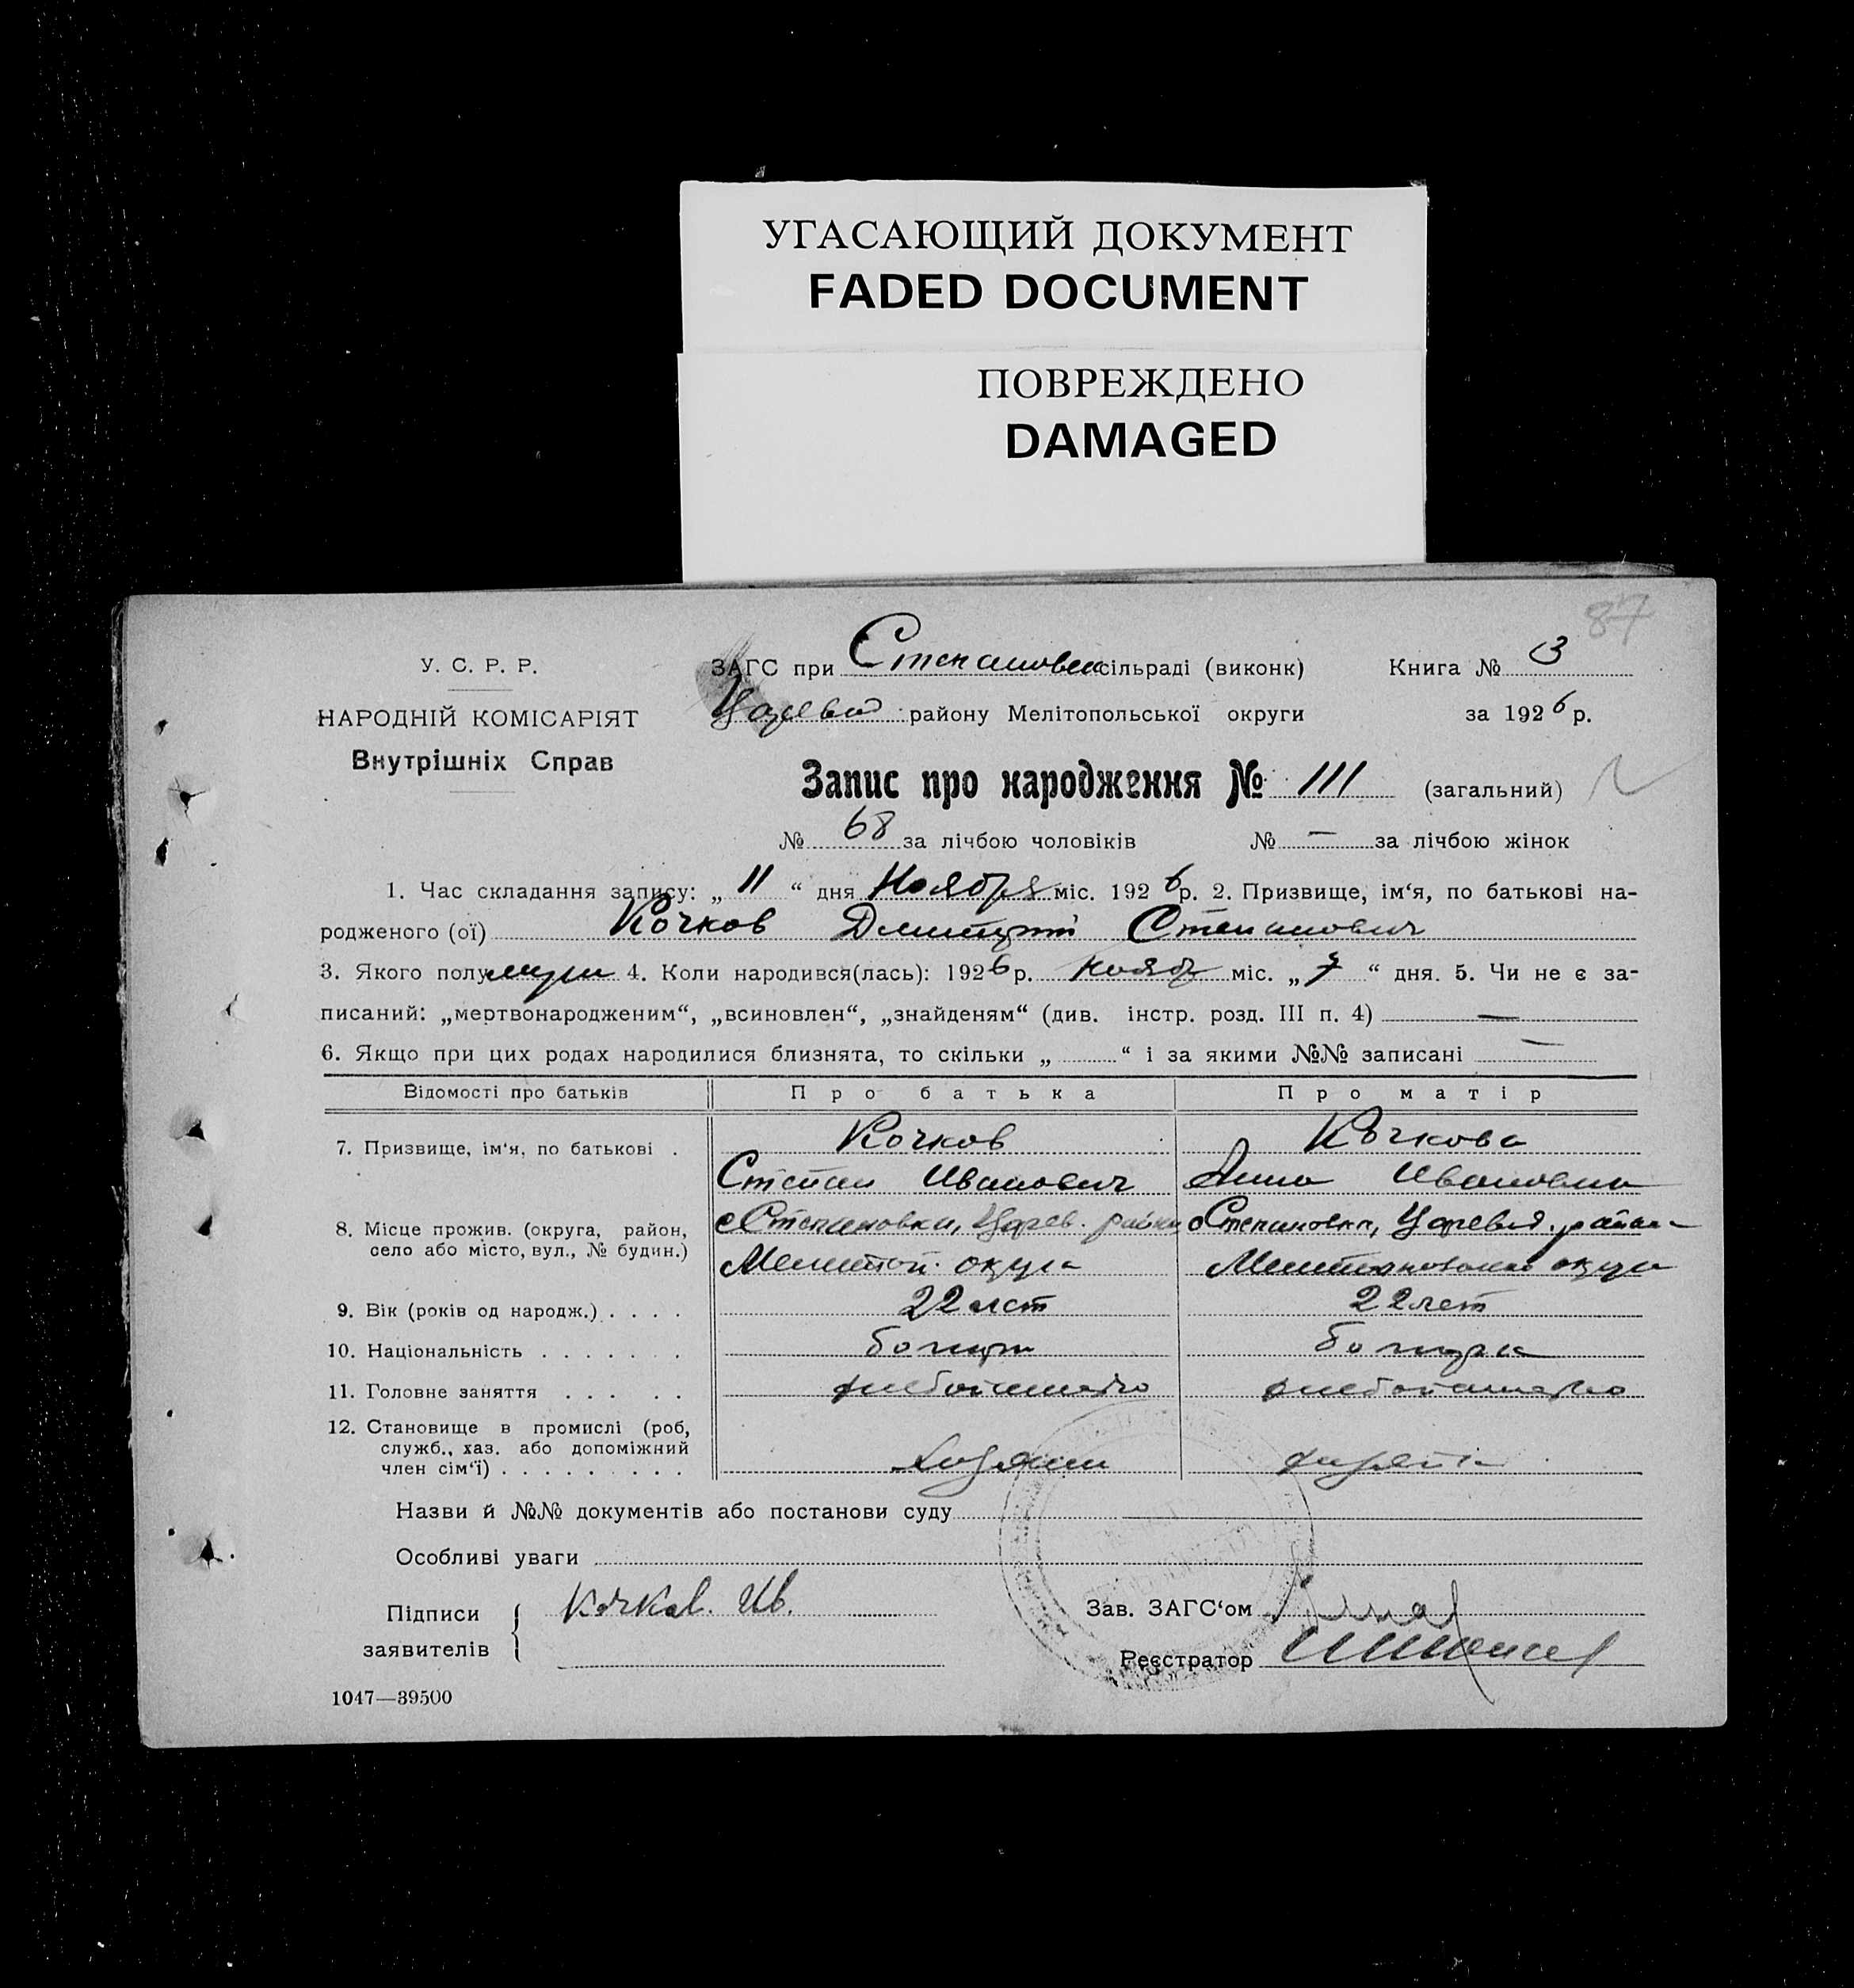 УГАСАЮЩИЙ ДОКУМЕНТ
FADED DOCUMENT
ПОВРЕЖДЕНО
DAMAGED
87
У. С. Р. Р.
НАРОДНІЙ КОМІСАРІЯТ
Внутрішніх Справ
ЗАГС при Степановск сільраді (виконк) Книга № 3
району Мелітопольської округи за 1926 р.
Запис про народження № 111 (загальний)
№ 68 за лічбою чоловіків № — за лічбою жінок
1. Час складання запису: „ 11 “ дня Ноября міс. 1926 р. 2. Призвище, ім‘я, по батькові на-
родженого (ої) Кочков Дмитрий Степанович
3. Якого полу муж 4. Коли народився(лась): 1926 р. Нояб міс. „ 7 “ дня. 5. Чи не є за-
писаний: „мертвонародженим“, „всиновлен“, „знайденям“ (див. інстр. розд. III п. 4) —
6. Якщо при цих родах народилися близнята, то скільки „ “ і за якими №№ записані —
Відомості про батьків Про батька Про матір
7. Призвище, ім‘я, по батькові . Кочков Кочкова
Степан Иванович Анна Ивановна
8. Місце прожив. (округа, район, село або місто, вул., № будин.) с Степановка, Царев. района с Степановка, Царевод. района
Мелитоп. округа Мелитопольской округа
9. Вік (років од народж.) . . . . 22 лет 22 лет
10. Національність . . . . . . . болгар болгарка
11. Головне заняття . . . . . хлебопашество хлебопашество
12. Становище в промислі (роб, служб., хаз. або допоміжний член сім‘ї) . . . . . . . . . хозяин хозяйка
Назви й №№ документів або постанови суду
Особливі уваги
Підписи заявителів { Кочков. Ив.
Зав. ЗАГС‘ом
Реєстратор
1047—39500